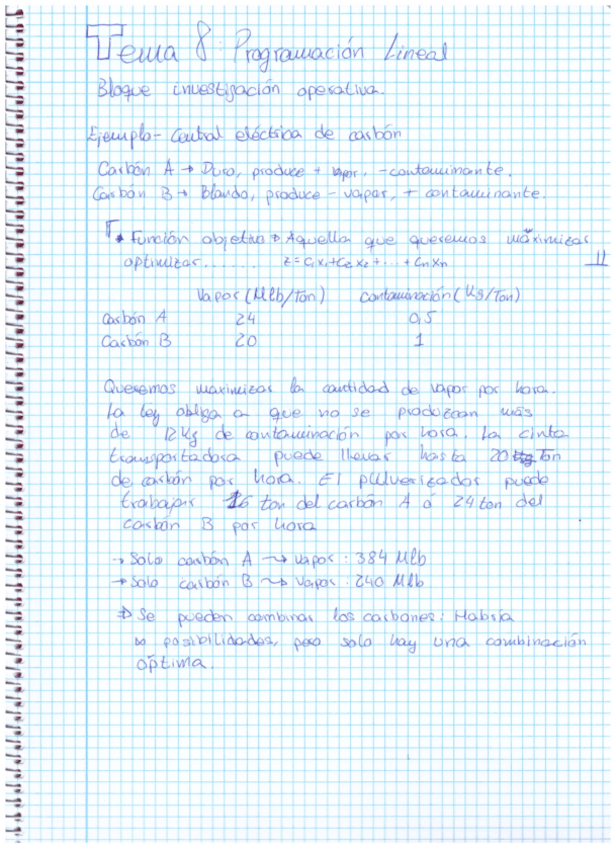 Tema 8: Programación Lineal
Bloque investigación operativa.
Ejemplo - Central eléctrica de carbón
Carbón A → Duro, produce + vapor, - contaminante.
Carbón B → Blando, produce - vapor, + contaminante.
* Función objetivo → Aquella que queremos maximizar
optimizar....... z = C₁x₁ + C₂x₂ + ... + Cₙxₙ
Vapor (Mlb/Ton) contaminación (Kg/Ton)
Carbón A 24 0,5
Carbón B 20 1
Queremos maximizar la cantidad de vapor por hora.
La ley obliga a que no se produzcan más
de 12 Kg de contaminación por hora. La cinta
transportadora puede llevar hasta 20 Ton
de carbón por hora. El pulverizador puede
trabajar 16 ton del carbón A ó 24 ton del
carbón B por hora
→ Solo carbón A ⇝ vapor: 384 Mlb
→ Solo carbón B ⇝ vapor: 240 Mlb
⇒ Se pueden combinar los carbones: Habría
∞ posibilidades, pero solo hay una combinación
óptima.